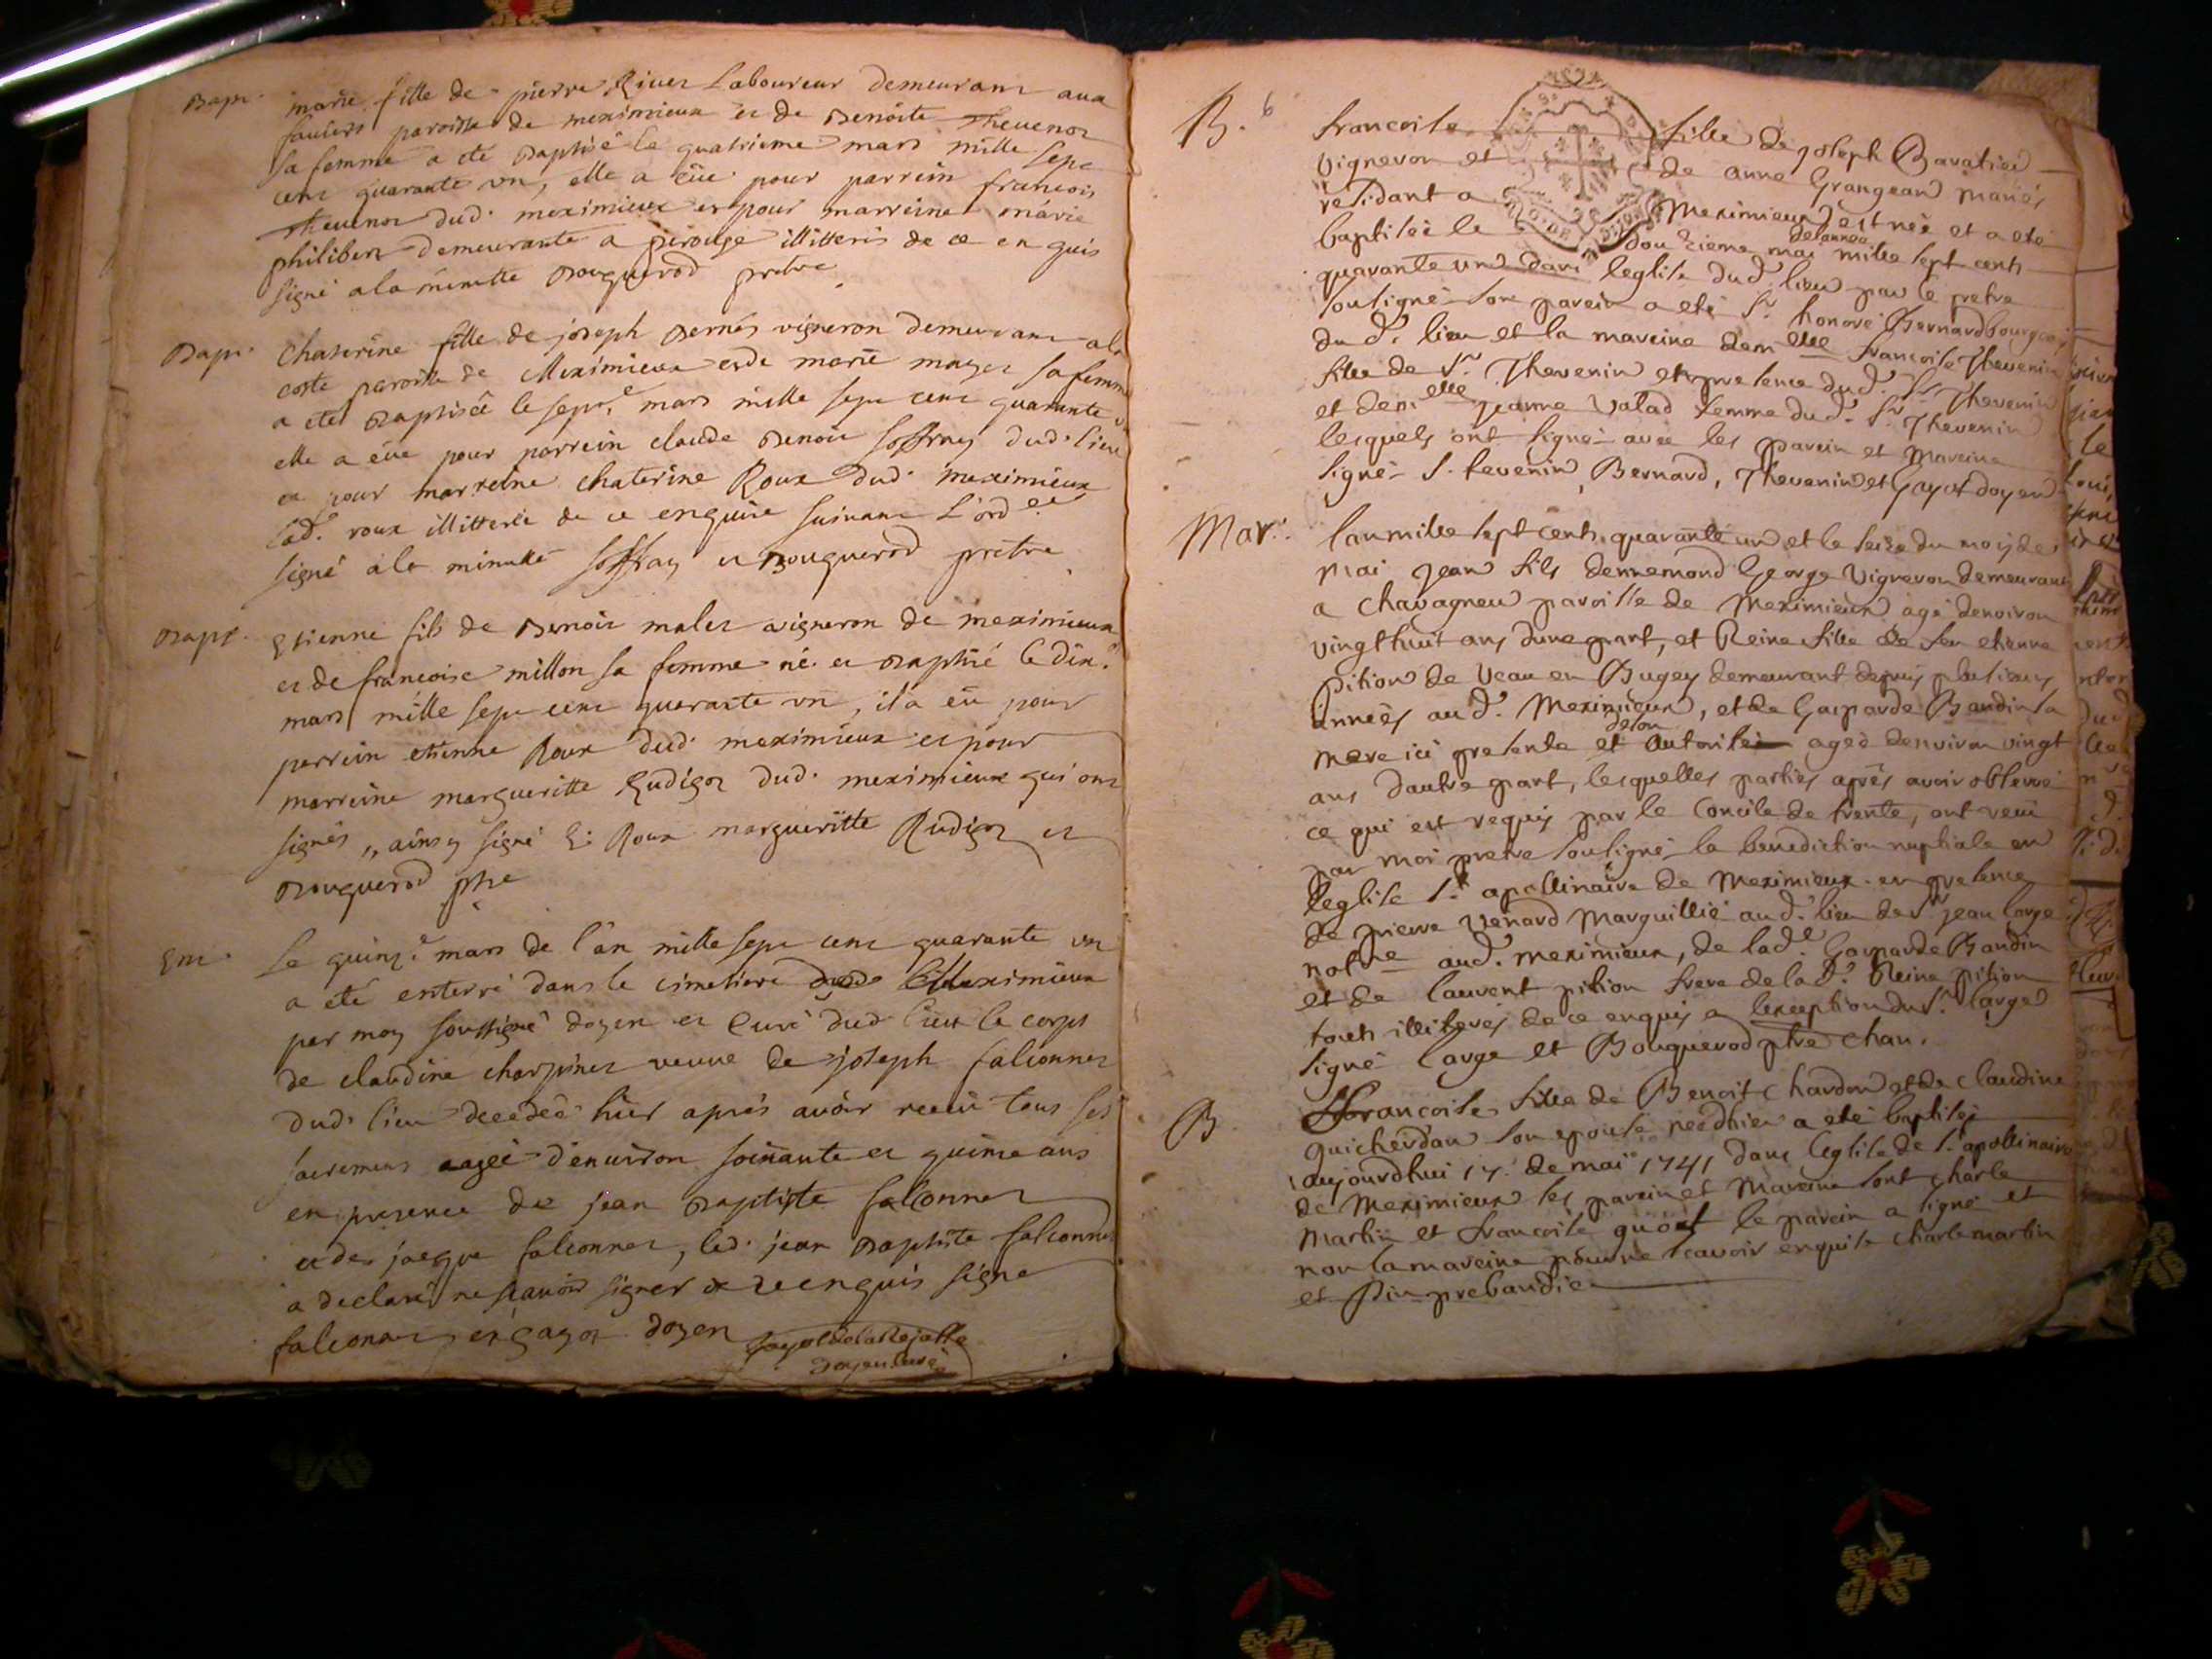 Bapt.
marie fille de pierre River Laboureur demeurant aux
paroisse de meximieux et de Benoite Thevenot
sa femme a eté Baptisé le quatrieme mars mille sept
cent quarante un, elle a eüe pour parrein francois
Thevenot dud. meximieux et pour marreine marie
philibert demeurante a perouge illitteris de ce en quis
signé a la minutte Bouquerod pretre
Bapt.
Chaterine fille de joseph Bernés vigneron demeurant a la
coste paroisse de Meximieux et de marie mayer sa femme
a eté Baptiseé le sept.e mars mille sept cent quarante
elle a eüe pour parrein claude Benoit soffray dud. lieu
et pour marreine chaterine Roux dud. meximieux
lad. roux illitterée de ce enquise suivant L'ord ce
signé a la minutte soffray et Bouquerod pretre
Bapt.
Etienne fils de Benoit malet vigneron de meximieux
et de francoise millon sa femme né et Baptisé le dix.e
mars mille sept cent quarante un, il a eü pour
parrein etienne Roux dud. meximieux et pour
marreine margueritte Rudigoz dud. meximieux qui ont
signés, ainsy signé E: Roux margueritte Rudigoz et
Bouquerod ptre
Ent.
Le quinz.e mars de l'an mille sept cent quarante un
a eté enterré dans le cimetiere de Meximieux
par moy soussigné doyen et Curé dud. lieu le corps
de claudine charpinet veuve de joseph falconnet
dud. lieu decedeé hier aprés avoir receu tous ses
sacremens ageé d'environ soixante et quinze ans
en presence de jean Baptiste falconnet
et de jacque falconnet, led. jean Baptiste falconnet
a declaré ne scavoir signer de ce enquis signe
falconnet et gayot doyen Gayot de la Rejasse
doyen curé
B. 6
francoise fille de Joseph Bavatier
vigneron et de anne Grangean mariés
residant a Meximieux est neé et a eté
baptiseé le douzieme mai de l'annee mille sept cents
quarante un dans leglise dud. lieu par le pretre
sousigné son parein a eté Sr. honoré Bernard bourgeois
du d. lieu et la mareine dem elle francoise Thevenin
fille de Sr. Thevenin et presence dud. Sr. Thevenin
et dem elle jeanne valad femme dud. Sr. Thevenin
lesquels ont signé avec les parein et mareine
signé S. tevenin, Bernard, Thevenin et Gayot doyen
Mar.:
lan mille sept cents quarante un et le seize du mois de
mai jean fils dennemond George vigneron demeurant
a chavagneu paroisse de Meximieux agé denviron
vingt huit ans dune part, et Reine fille de feu etienne
pition de veau en Bugey demeurant depuis plusieurs
anneés aud. Meximieux, et de Gasparde Baudin sa
mere ici presente et delon autorisé ageé denviron vingt
ans dautre part, lesquelles parties aprés avoir observé
ce qui est requis par le Concile de trente, ont receu
par moi pretre sousigné la benediction nuptiale en
leglise St. apollinaire de Meximieux en presence
de pierre venard Marguillié aud. lieu de Sr. jean large
not re aud. meximieux, de lad e. Gasparde Baudin
et de laurent pition frere de lad e. Reine pition
touts illiterés de ce enquis a lexception du Sr. large
signé large et Bouquerod ptre chan.
B
francoise fille de Benoit Chardon et de claudine
guicherdan son epouse neé dhier a eté baptiseé
aujourdhui 17. de mai 1741 dans leglise de St. apollinaire
de Meximieux les parein et mareine sont charle
Martin et francoise le parein a signé et
non la mareine pour ne scavoir enquise charle martin
et Pin prebandier